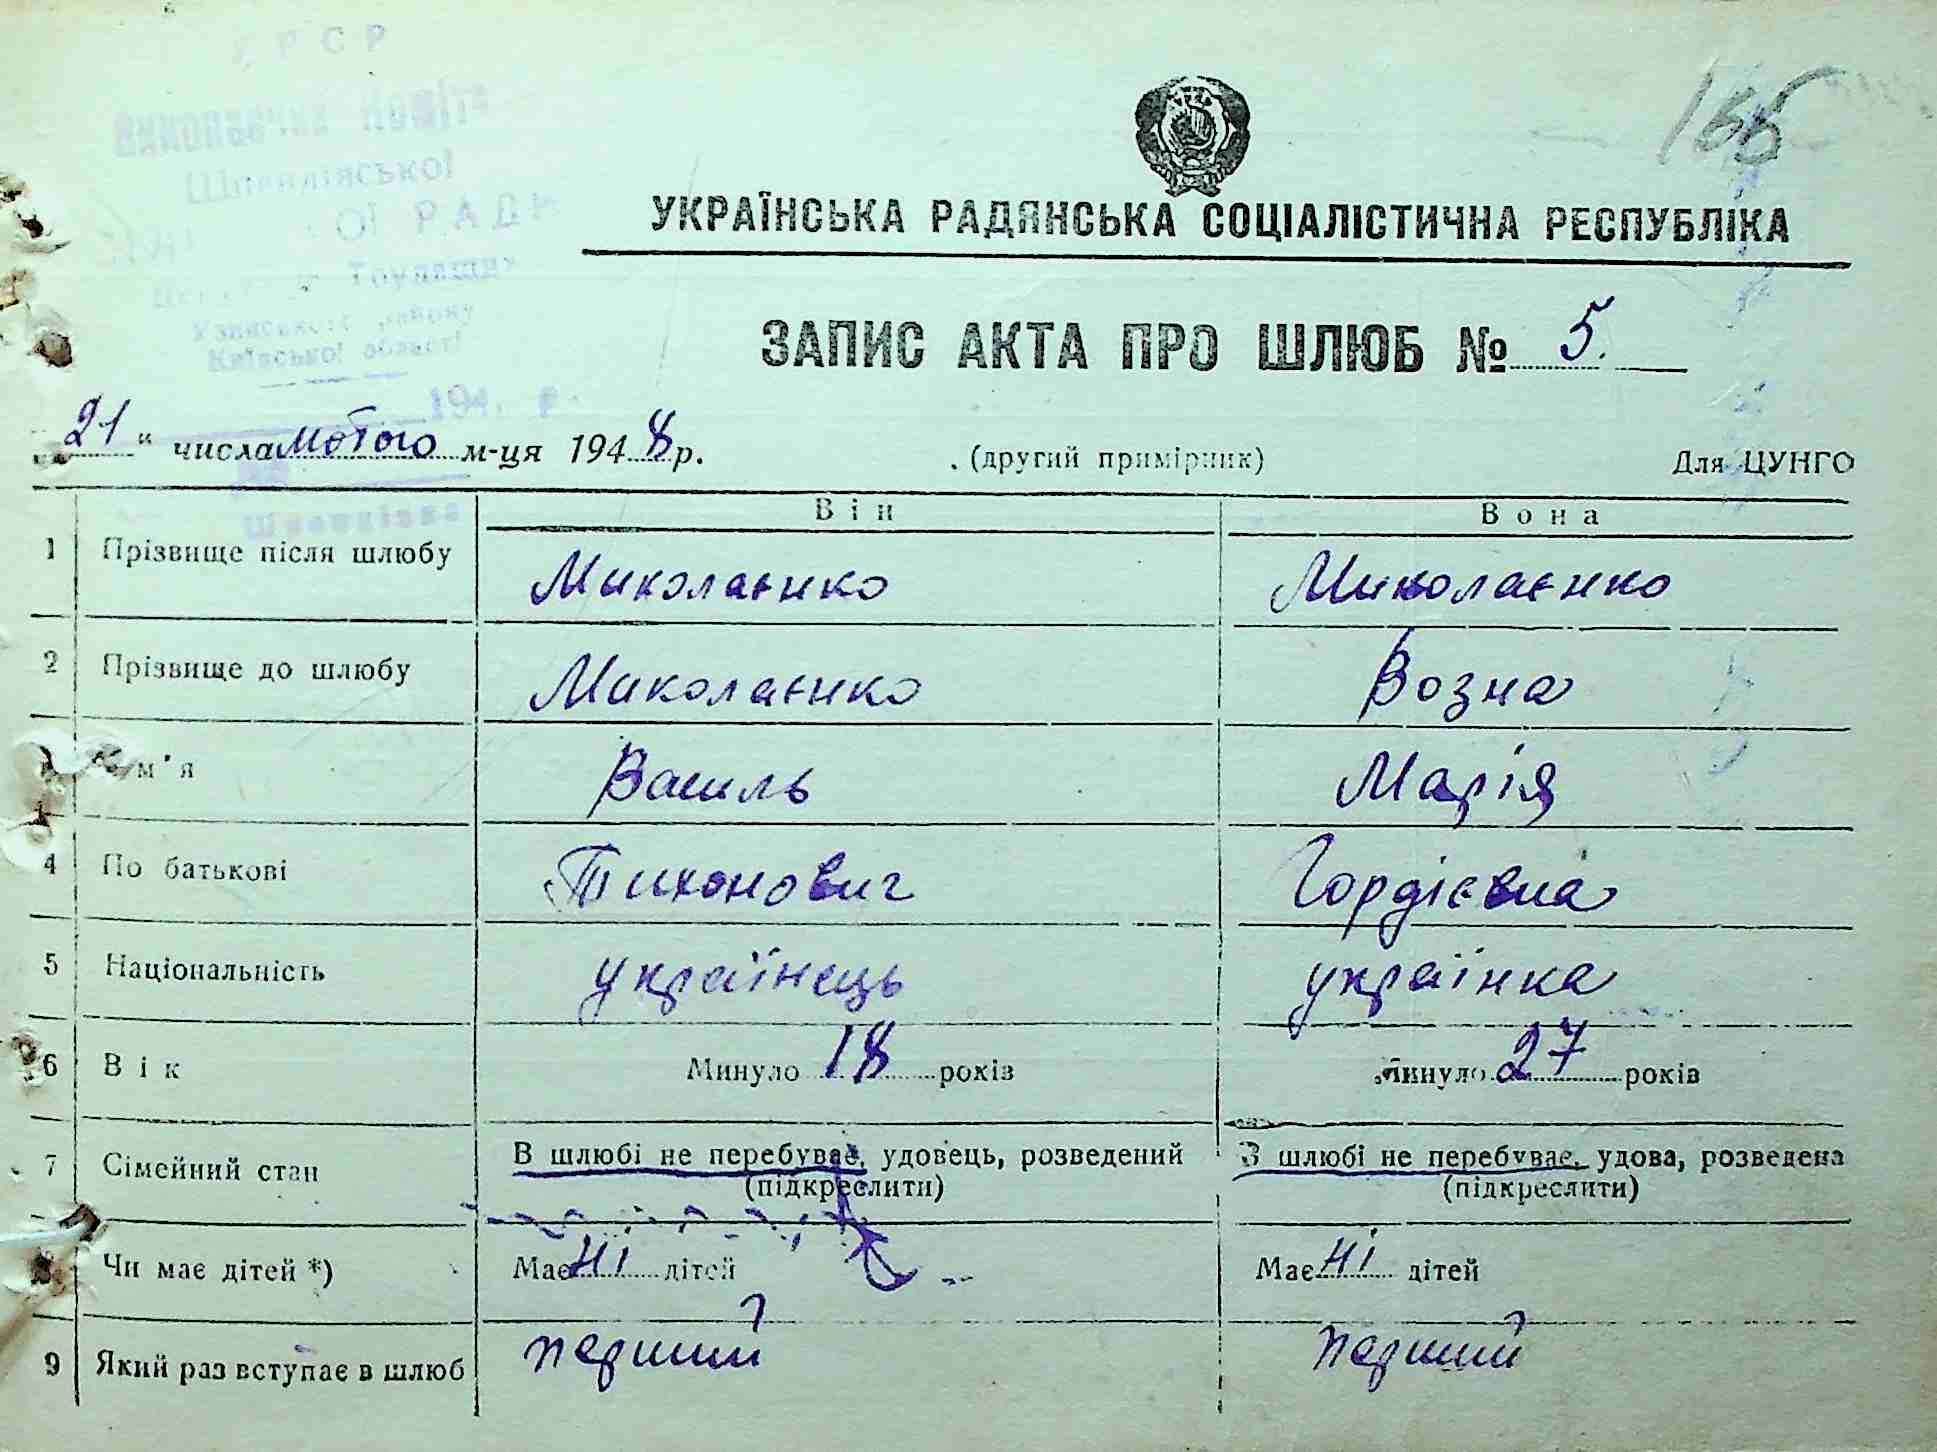 УРСР
Виконавчий комітет
Шпендівської
ОЇ РАДИ
Трудящих
Узинського району
Київської області
194 р.
166
УКРАЇНСЬКА РАДЯНСЬКА СОЦІАЛІСТИЧНА РЕСПУБЛІКА
ЗАПИС АКТА ПРО ШЛЮБ № 5.
21 " числа лютого м-ця 1948 р. (другий примірник) Для ЦУНГО
Він Вона
1 Прізвище після шлюбу Миколаєнко Миколаєнко
2 Прізвище до шлюбу Миколаєнко Возна
м'я Василь Марія
4 По батькові Тихонович Гордієвна
5 Національність українець українка
6 Вік Минуло 18 років Минуло 27 років
7 Сімейний стан В шлюбі не перебуває, удовець, розведений В шлюбі не перебуває, удова, розведена
(підкреслити) (підкреслити)
8 Чи має дітей *) Має ні дітей Має ні дітей
9 Який раз вступає в шлюб перший перший